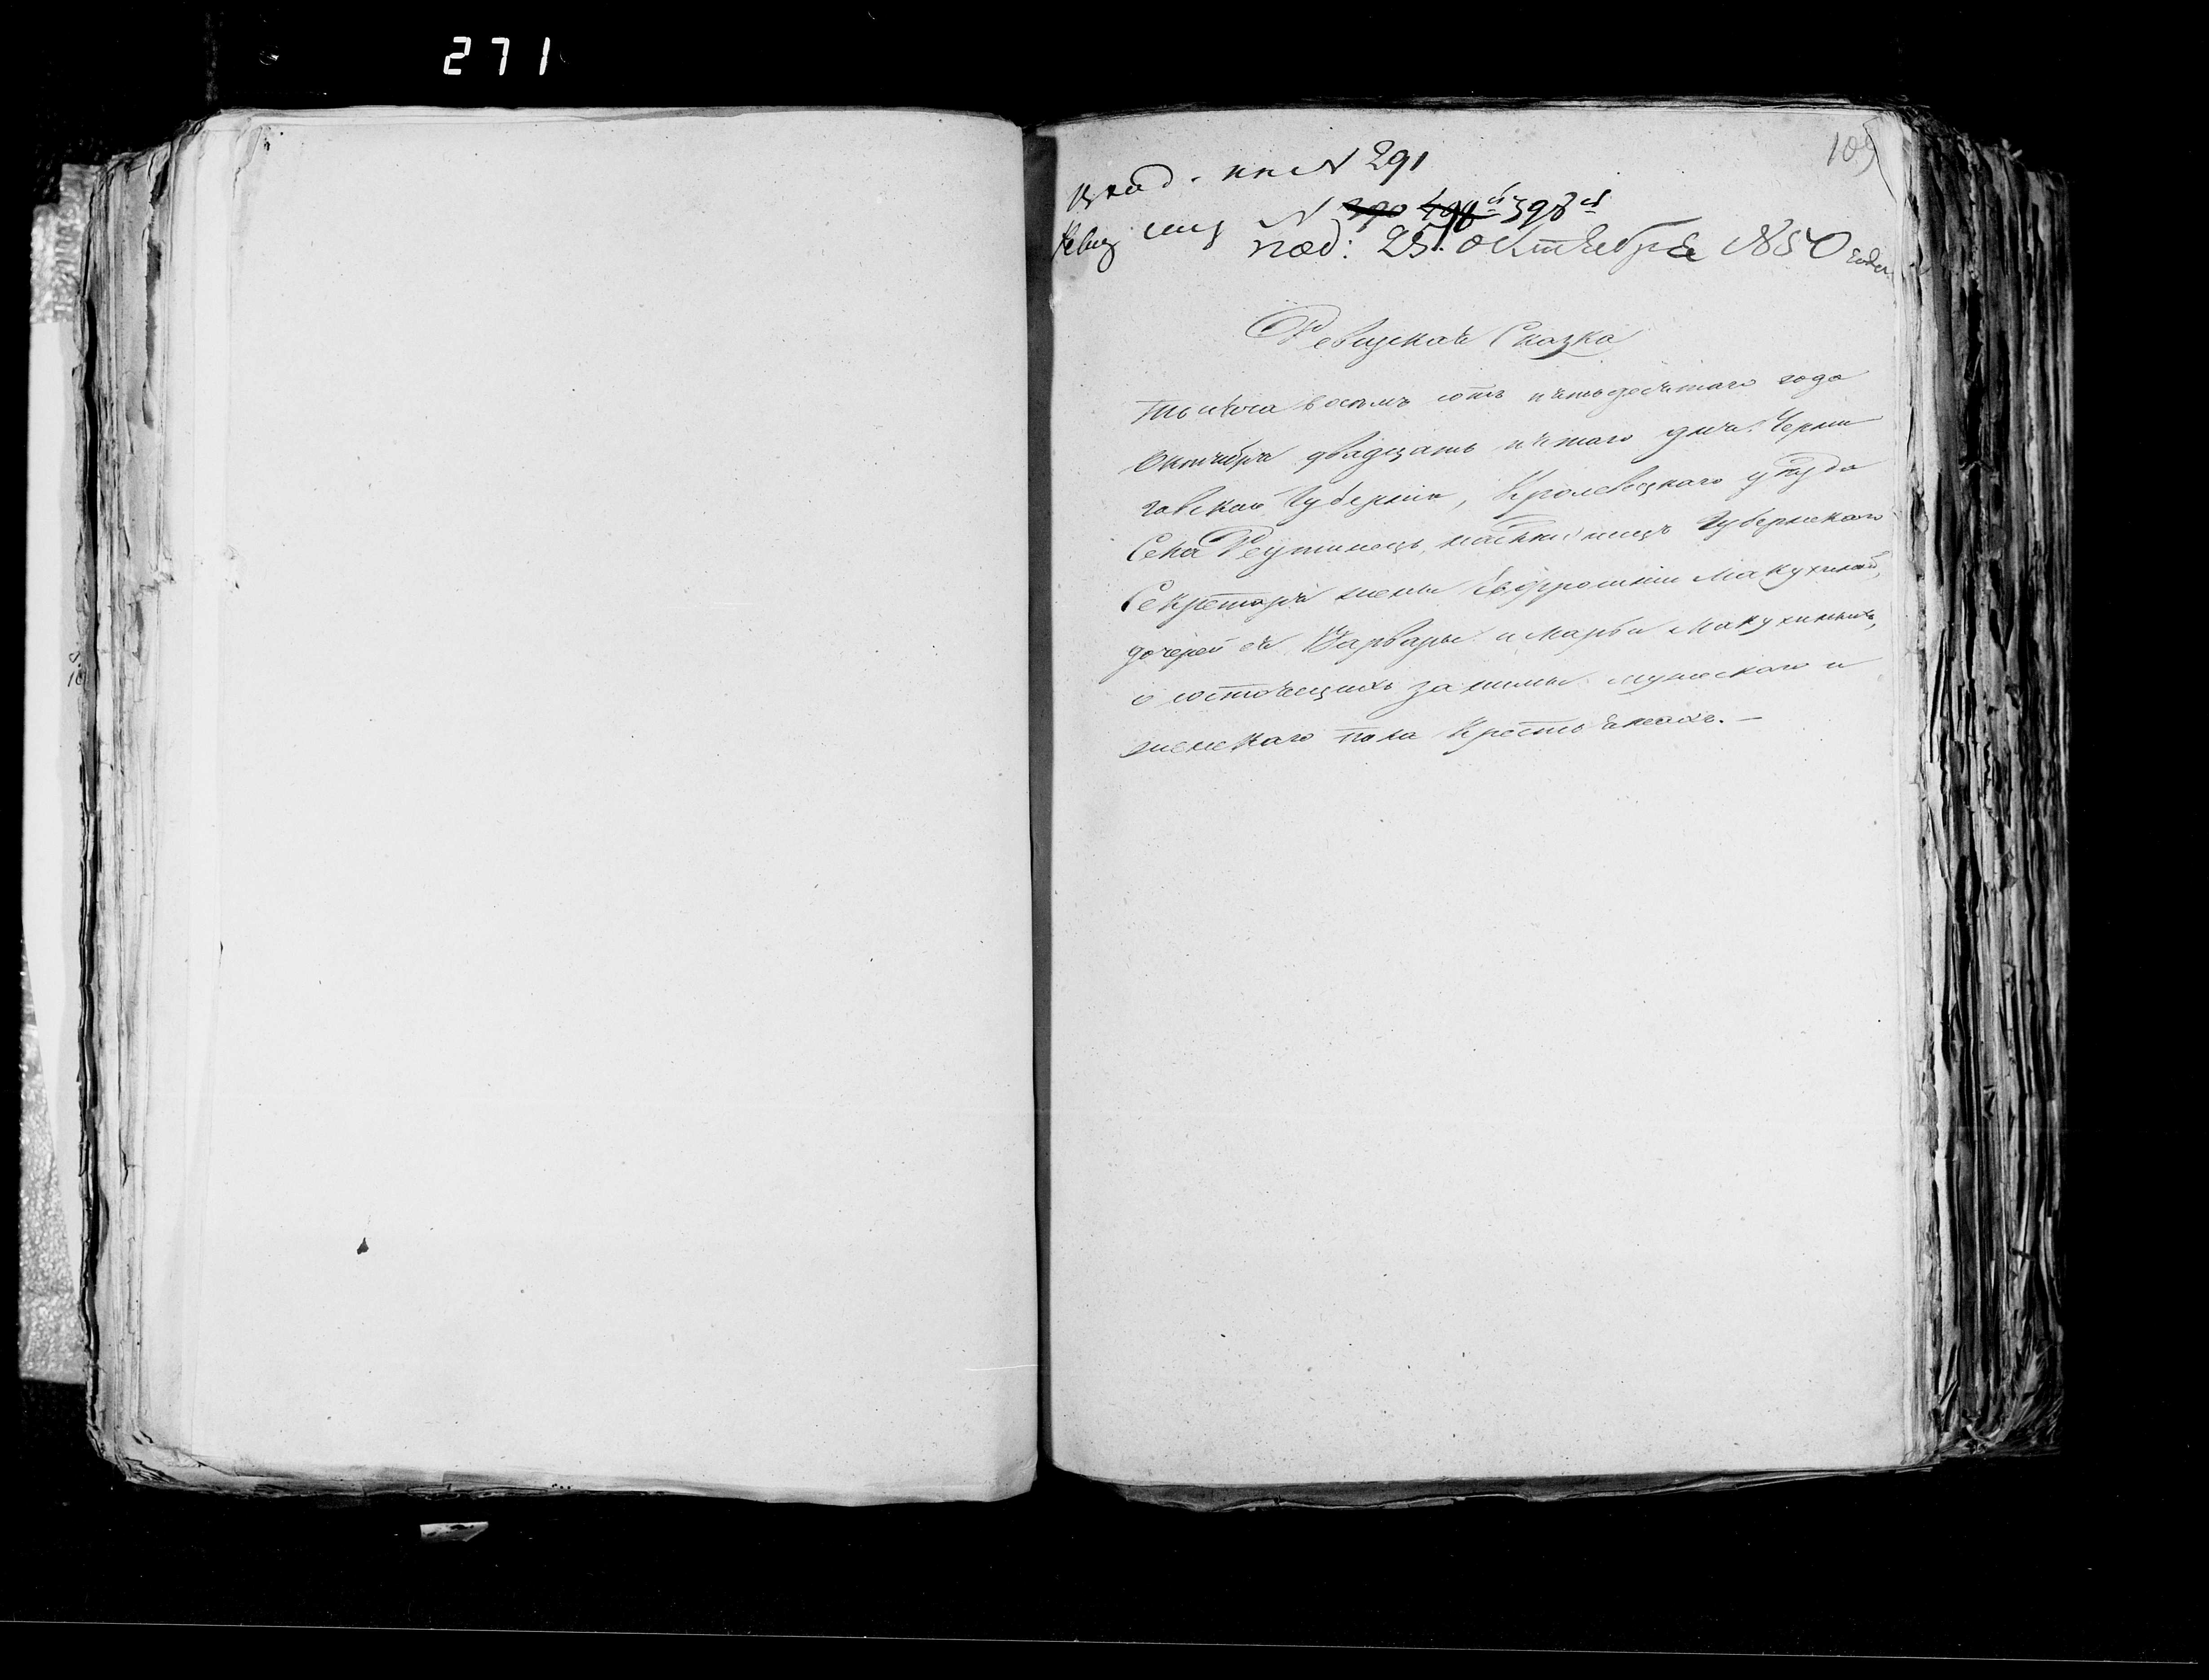 271
105
влад. кн № 291
Ревиз ска № 390 498й 398й
под: 25. Октября 1850 года.
Ревизская Сказка
тысяча восемь сотъ пятьдесятаго года
Октября двадцать пятаго дня. Черни
говской Губерніи, Кролевецкаго уѣзда
Села Реутинецъ, наслѣдницъ Губернскаго
Секретаря жены Евфросиніи Макухиной,
дочерей ея Варвары и Марьи Макухиныхъ,
о состоящихъ за ними мужескаго и
женскаго пола Крестьянахъ. —